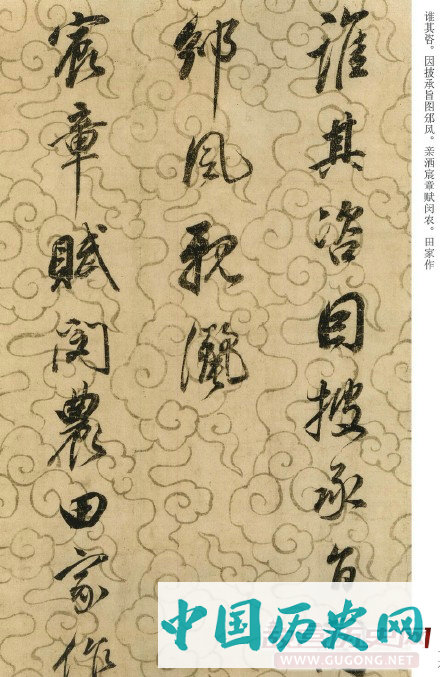 谁其咨。因披承旨图邠风。亲洒宸章赋闵农。田家作
誰其咨因披承旨
邠風親灑
宸章賦閔農田家作
中国历史网
WWW.GUGONG.NET